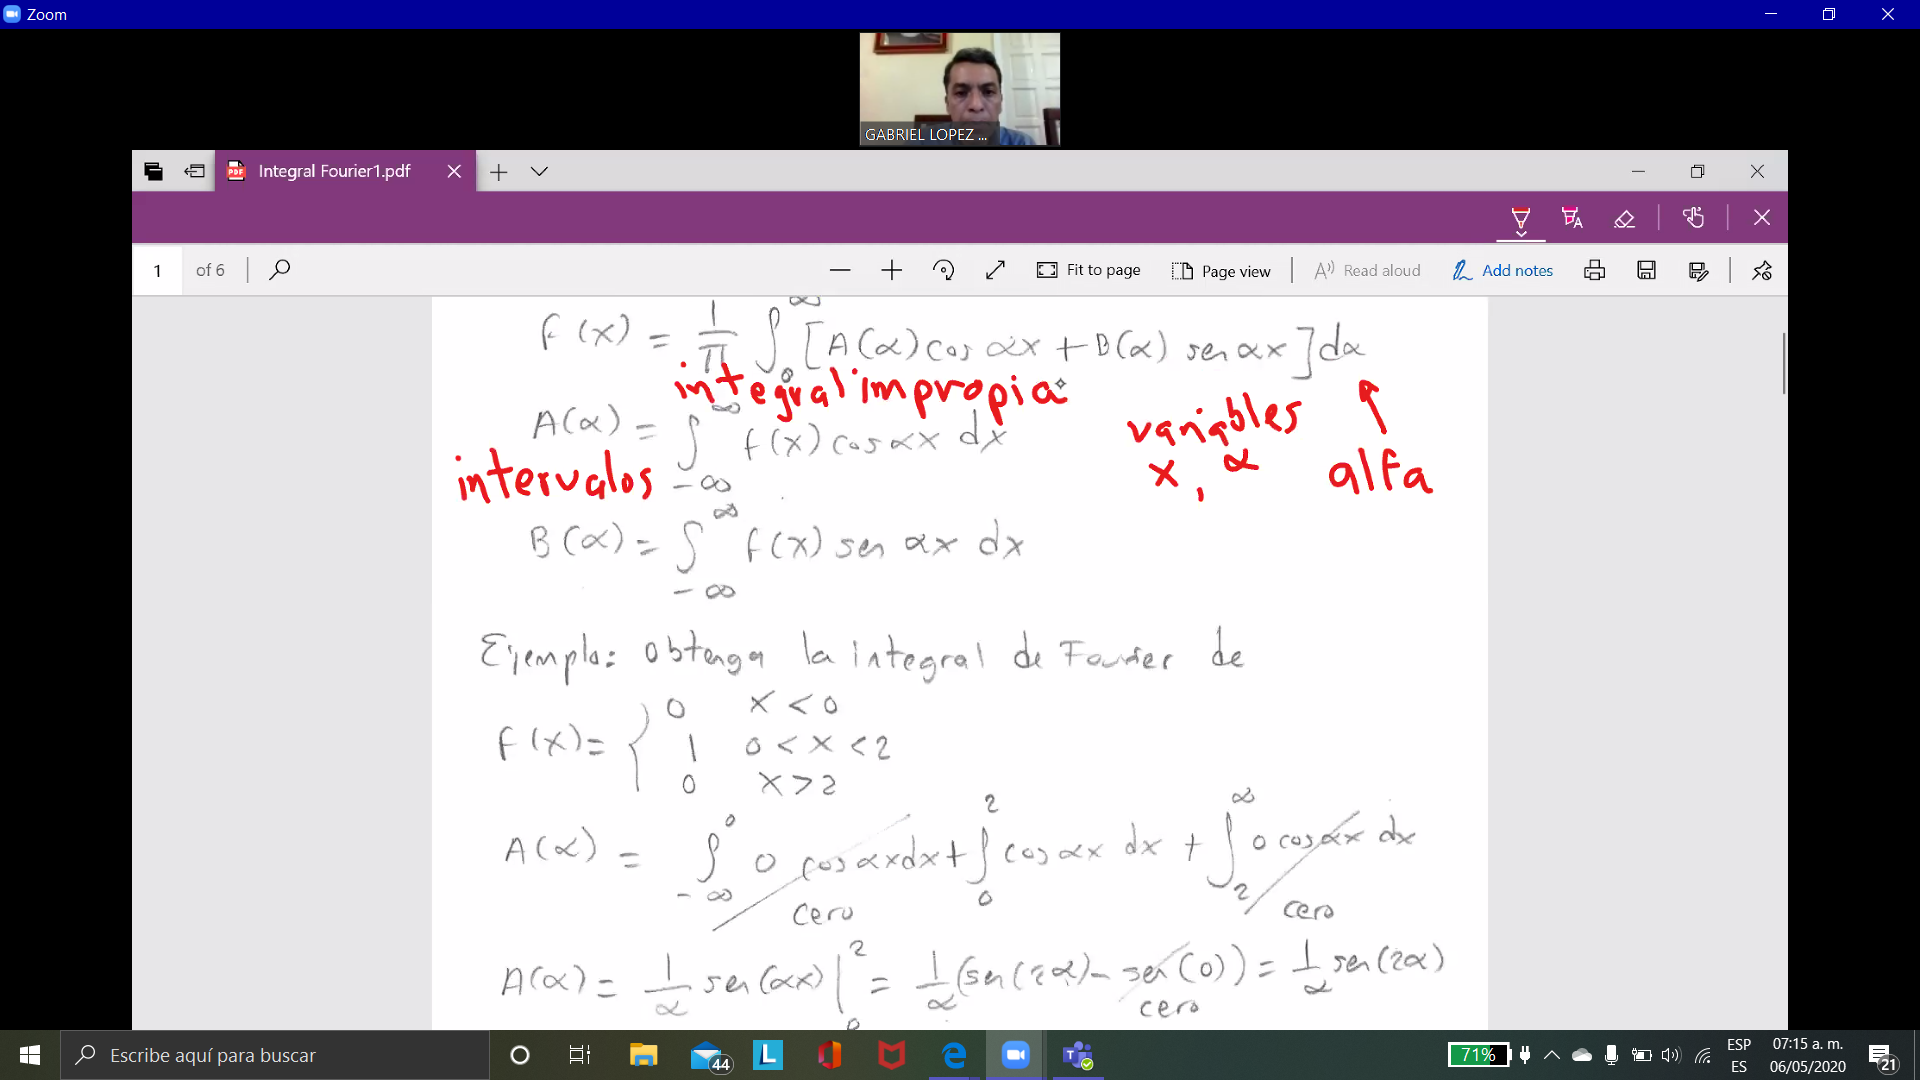 Zoom
GABRIEL LOPEZ ...
Integral Fourier1.pdf
1 of 6
Fit to page
Page view
Read aloud
Add notes
f(x) = 1/π ∫₀^∞ [A(α) cos αx + B(α) sen αx] dα
integral impropia
A(α) = ∫_{-∞}^{∞} f(x) cos αx dx
variables
x, α
alfa
intervalos
B(α) = ∫_{-∞}^{∞} f(x) sen αx dx
Ejemplo: Obtenga la integral de Fourier de
f(x) = { 0 x < 0
1 0 < x < 2
0 x > 2
A(α) = ∫_{-∞}^{0} 0 cos αx dx + ∫₀² cos αx dx + ∫₂^∞ 0 cos αx dx
cero cero
A(α) = 1/α sen(αx) |₀² = 1/α (sen(2α) - sen(0)) = 1/α sen(2α)
cero
Escribe aquí para buscar
44
71%
ESP
ES
07:15 a. m.
06/05/2020
21